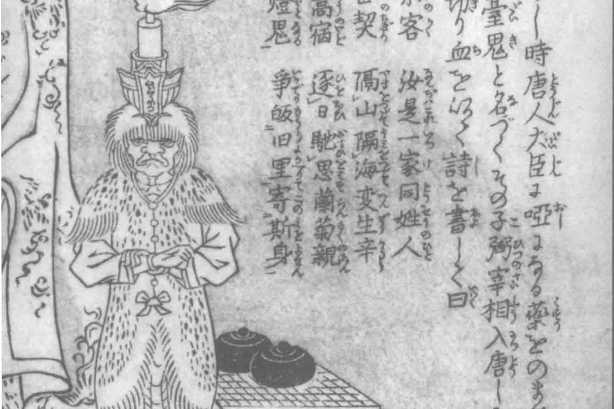 し時唐人大臣に唖になる薬をのま
臺鬼と名づくその子弼宰相入唐し
切り血を以て詩を書して曰
京客 汝是一家同姓人
世契 隔山隔海変生辛
蒿宿 逐日馳思蘭菊親
燈鬼 争皈旧里寄斯身